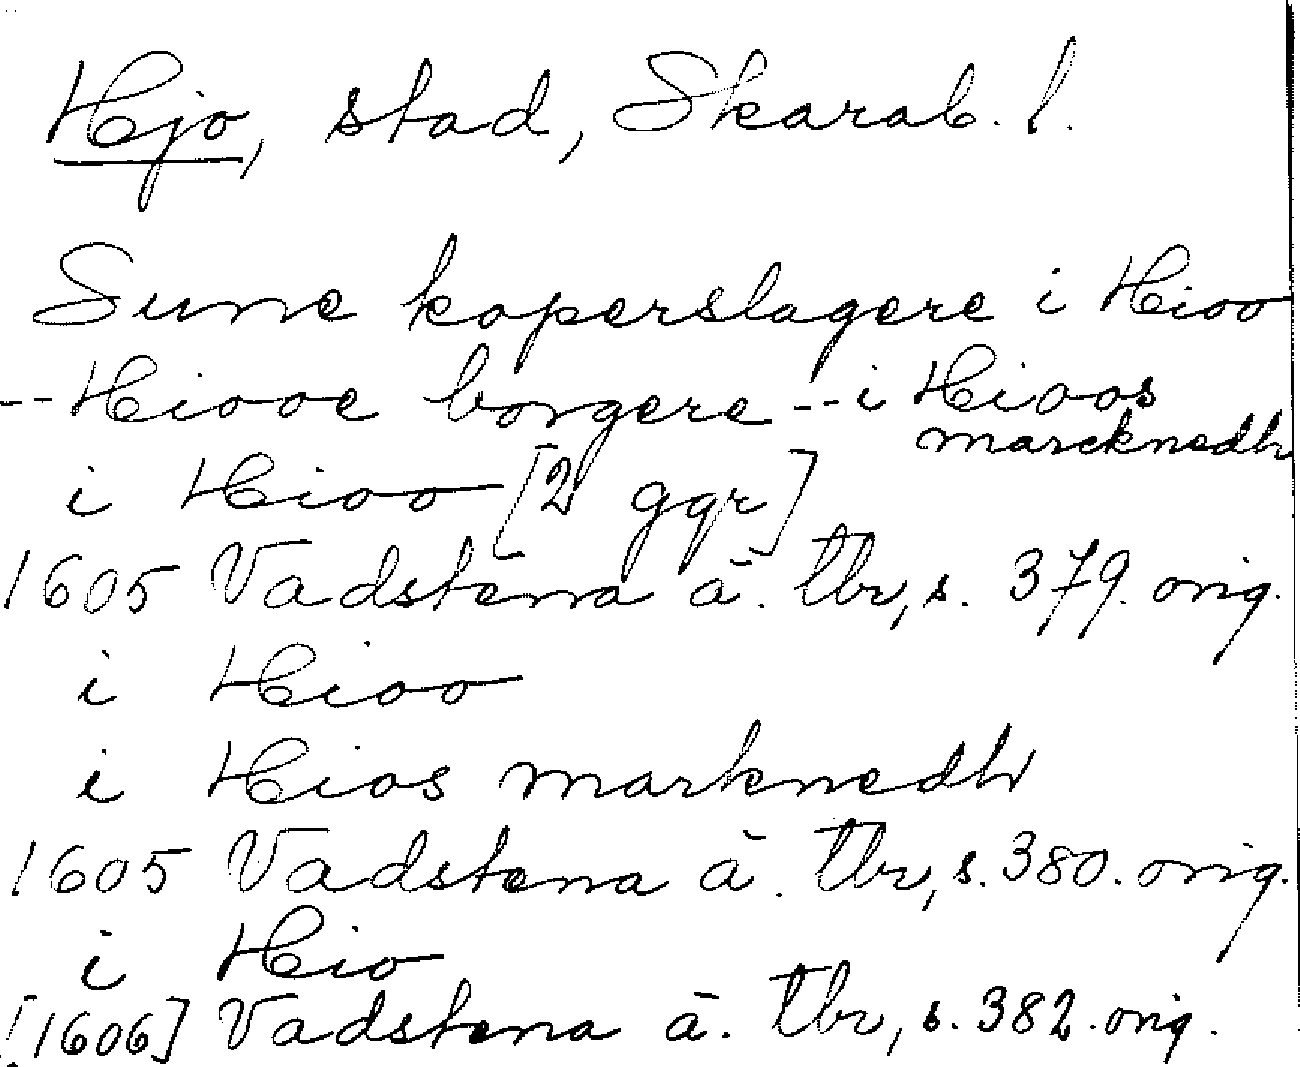 Hjo, stad, Skarab. l.
Sune koperslagere i Hioo
-- Hiooe borgere -- i Hioos
marcknedh
i Hioo [2 ggr]
1605 Vadstena ä. tbr, s. 379. orig.
i Hioo
i Hios marknedh
1605 Vadstena ä. tbr, s. 380. orig.
i Hio
[1606] Vadstena ä. tbr, s. 382. orig.